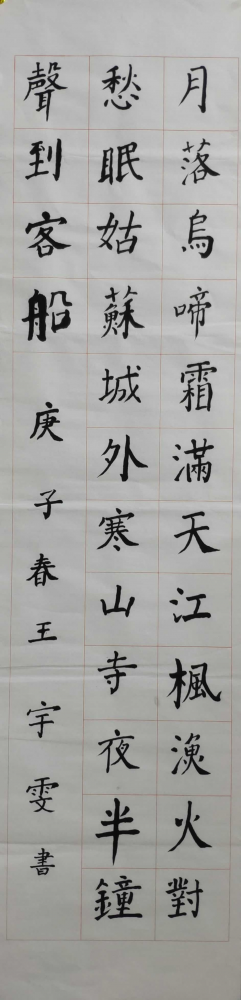 月落烏啼霜滿天江楓漁火對
愁眠姑蘇城外寒山寺夜半鐘
聲到客船 庚子春王宇雯書